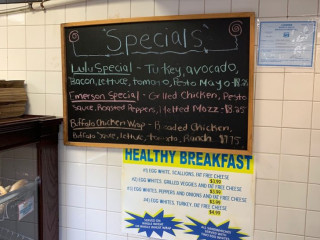 "Specials"
Lulu Special - Turkey, avocado,
Bacon, lettuce, tomato, Pesto Mayo
Emerson Special - Grilled Chicken, Pesto
Sauce, Roasted Peppers, Melted Mozz - $8.75
Buffalo Chicken Wrap - Breaded Chicken,
Buffalo Sauce, lettuce, tomato, Ranch $7.75
HEALTHY BREAKFAST
EGG WHITES, SCALLIONS, FAT FREE CHEESE
$3.99
EGG WHITES, GRILLED VEGGIES AND FAT FREE CHEESE
$3.99
EGG WHITES, PEPPERS AND ONIONS AND FAT FREE CHEESE
$3.99
EGG WHITES, TURKEY, FAT FREE CHEESE
$4.99